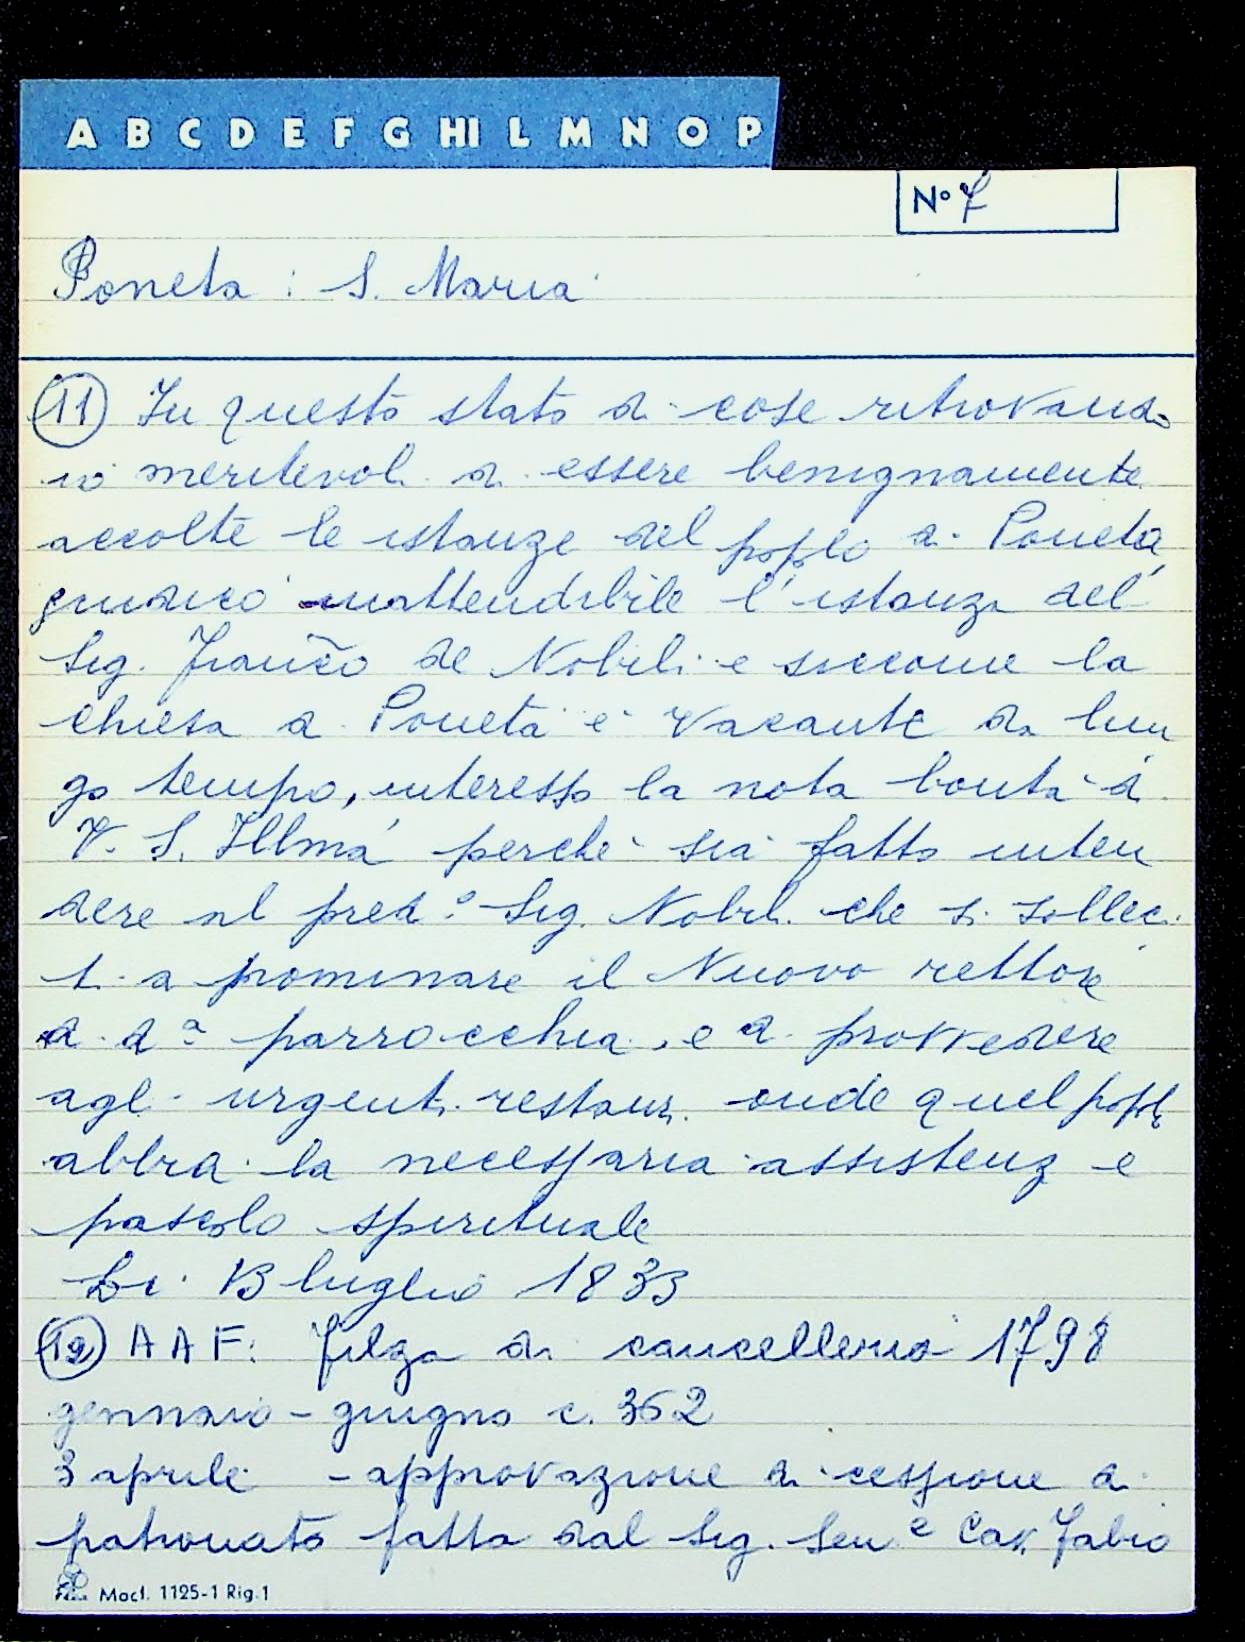 A B C D E F G HI L M N O P
No 7
Poneta : S. Maria
11 In questo stato di cose ritrovando
io meritevoli di essere benignamente
accolte le istanze del popolo di Poneta
giudico inattendibile l'istanza del
Sig. Franco de Nobili e siccome la
chiesa di Poneta è vacante da lun
go tempo, interesso la nota bontà di
V. S. Illma perchè sia fatto inten
dere al pred.o Sig. Nobili che si solleci
ti a nominare il Nuovo rettore
di d.a parrocchia, e a provvedere
agli urgenti restauri onde quel popolo
abbia la necessaria assistenza e
pascolo spirituale
Li 13 luglio 1833
12 A A F: Filza di cancelleria 1798
gennaio - giugno c. 362
3 aprile - approvazione di cessione di
patronato fatta dal Sig. Sen.e Cav. Fabio
Mod. 1125-1 Rig.1